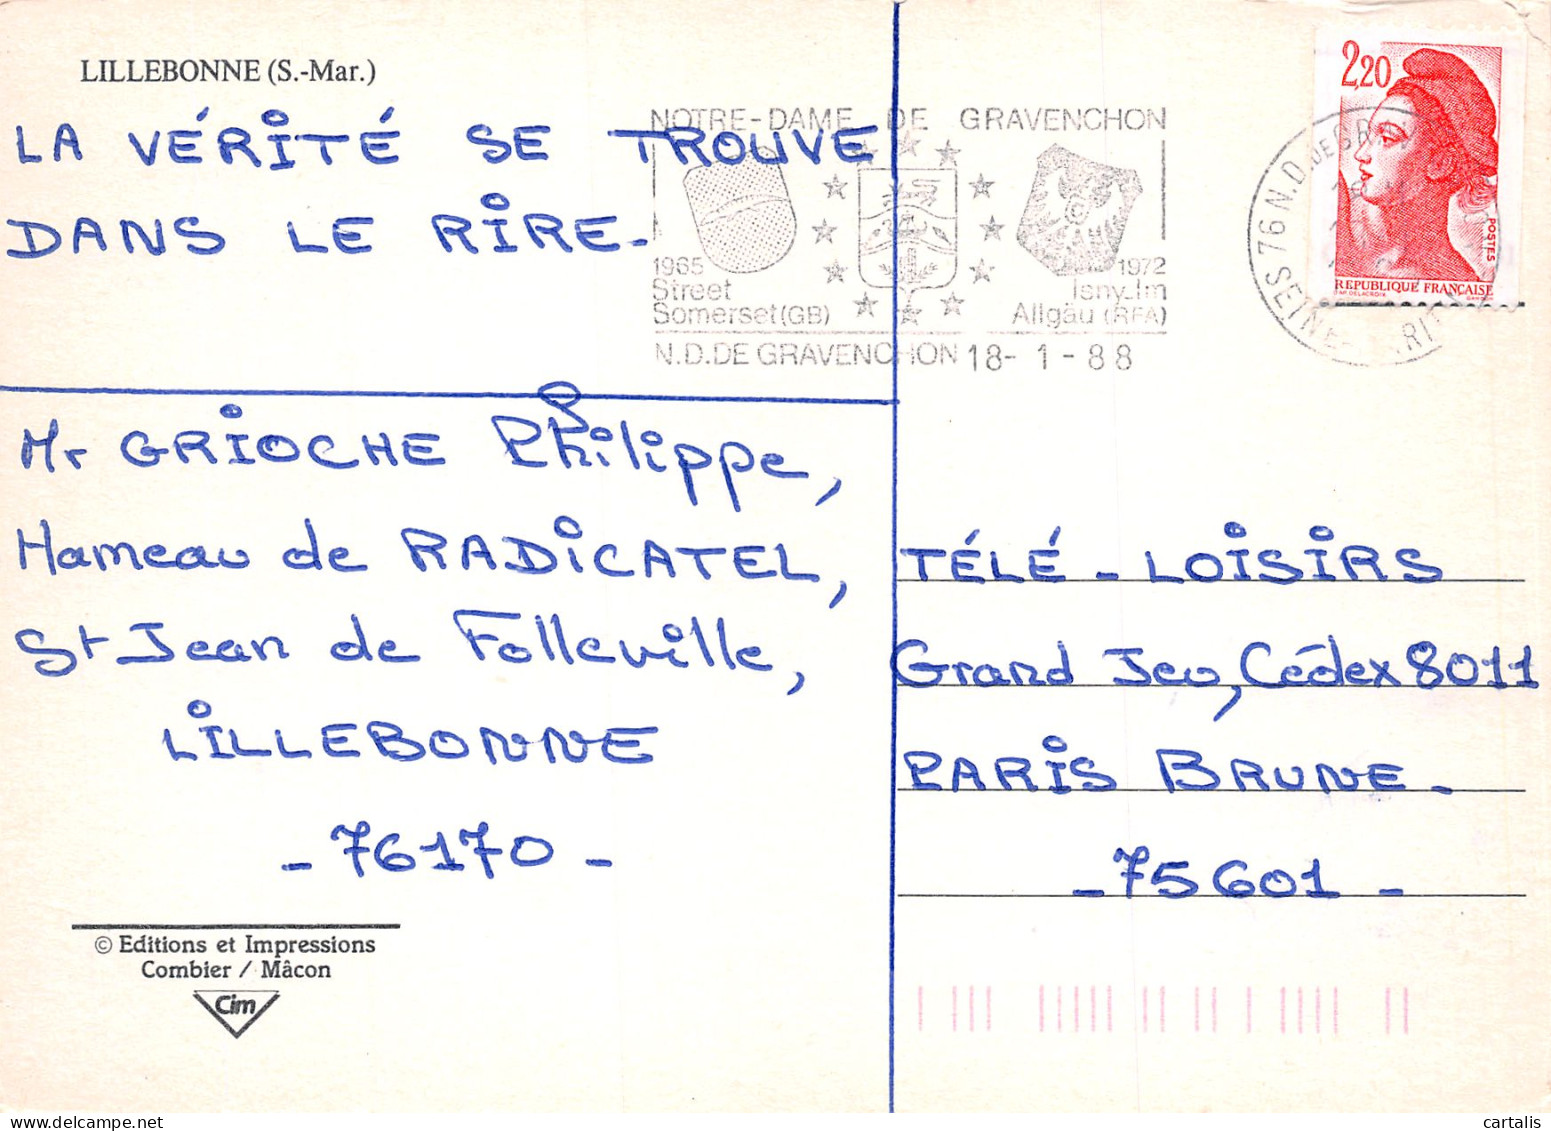 LILLEBONNE (S.-Mar.)
LA VÉRITÉ SE TROUVE
DANS LE RIRE-
NOTRE-DAME DE GRAVENCHON
1965
Street
Somerset(GB)
1972
Isny_Im
Allgäu (RFA)
N.D.DE GRAVENCHON 18- 1 - 88
2,20
POSTES
REPUBLIQUE FRANÇAISE
76 N.D. DE GRAV
SEINE-MARITIME
Mr GRIOCHE Philippe,
Hameau de RADICATEL,
St Jean de Folleville,
LILLEBONNE
- 76170 -
TÉLÉ - LOISIRS
Grand Jeu, Cédex 8011
PARIS BRUNE -
- 75601 -
© Editions et Impressions
Combier / Mâcon
Cim
cartalis